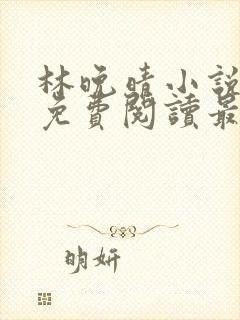 林晚晴小說
免費閱讀最
明妍